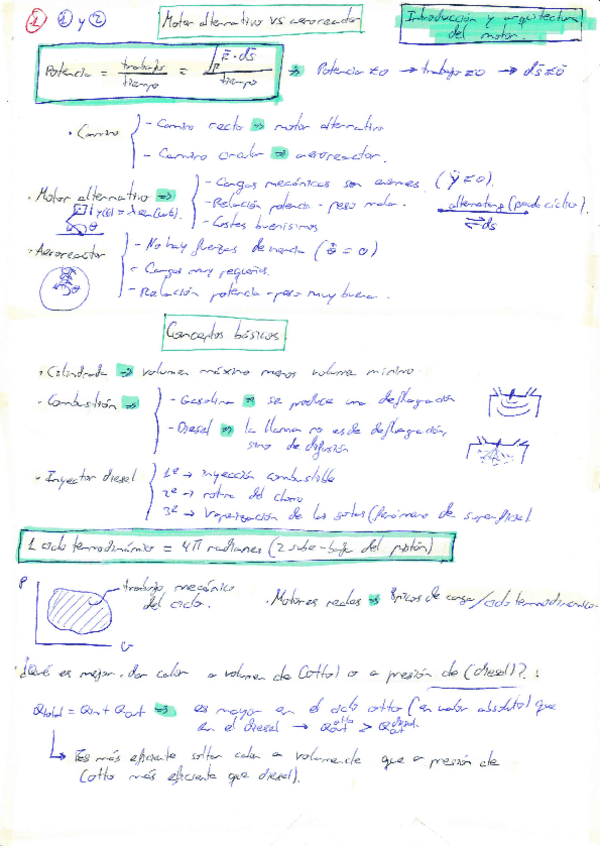 ① ① y ②
Motor alternativo vs aeroreactor
Introducción y arquitectura
del motor.
Potencia = trabajo/tiempo = ∫F·ds/tiempo ⇒ Potencia ≠ 0 → trabajo ≠ 0 → ds ≠ 0
· Camino
- Camino recto ⇒ motor alternativo
- Camino circular ⇒ aeroreactor.
· Motor alternativo ⇒
- Cargas mecánicas son enormes. (Ÿ ≠ 0).
- Relación potencia - peso mala.
- Costes buenísimos
alternating
ds
· Aeroreactor
- No hay fuerzas de inercia (θ̈ = 0)
- Cargas muy pequeñas.
- Relación potencia - peso muy buena.
Conceptos básicos
· Cilindrada ⇒ volumen máximo menos volumen mínimo.
· Combustión ⇒
- Gasolina ⇒ se produce una deflagración
- Diesel ⇒ la llama no es de deflagración,
sino de difusión
· Inyector diesel
1º → inyección combustible
2º → rotura del chorro
3º → Vaporización de las gotas (fenómeno de superficie).
1 ciclo termodinámico = 4π radianes (2 sube-baja del pistón)
P
trabajo mecánico
del ciclo.
· Motores reales ⇒ picos de carga/ciclo termodinámico.
V
· ¿Qué es mejor, dar calor a volumen cte (otto) o a presión cte (diesel)? :
Qtotal = Qin + Qout ⇒ es mayor en el ciclo otto (en valor absoluto) que
en el diesel → Qout otto > Qout diesel.
↳ Es más eficiente soltar calor a volumen cte que a presión cte
(otto más eficiente que diesel).